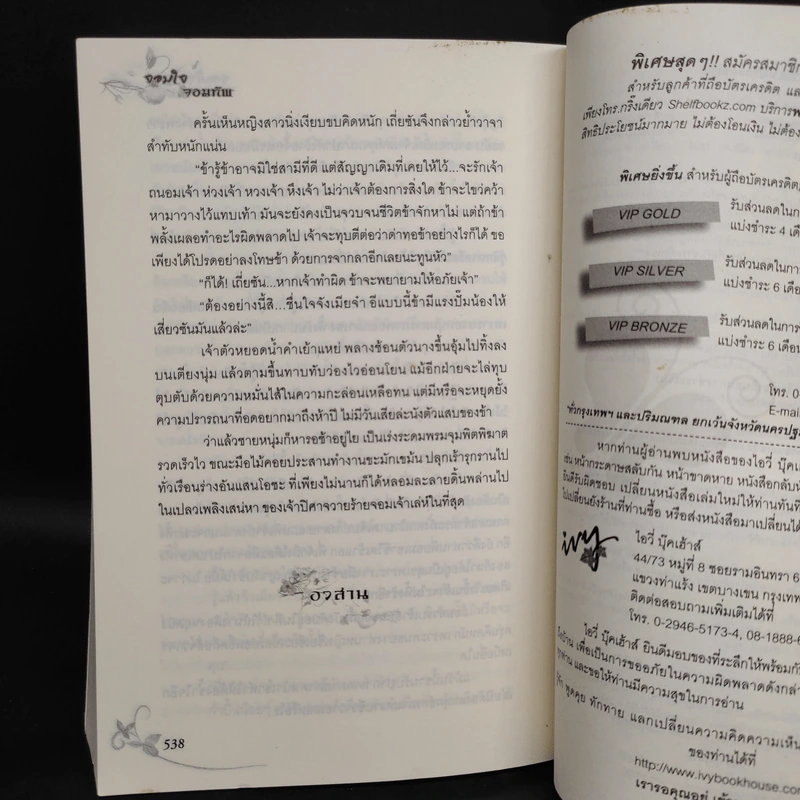 จอมใจ
จอมทัพ
ครั้นเห็นหญิงสาวนิ่งเงียบขบคิดหนัก เถี่ยซันจึงกล่าวย้ำวาจา
สำทับหนักแน่น
“ข้ารู้ข้าอาจมิใช่สามีที่ดี แต่สัญญาเดิมที่เคยให้ไว้...จะรักเจ้า
ถนอมเจ้า ห่วงเจ้า หวงเจ้า หึงเจ้า ไม่ว่าเจ้าต้องการสิ่งใด ข้าจะไขว่คว้า
หามาวางไว้แทบเท้า มันจะยังคงเป็นจวบจนชีวิตข้าจักหาไม่ แต่ถ้าข้า
พลั้งเผลอทำอะไรผิดพลาดไป เจ้าจะทุบตีต่อว่าด่าทอข้าอย่างไรก็ได้ ขอ
เพียงได้โปรดอย่าลงโทษข้า ด้วยการจากลาอีกเลยนะทูนหัว”
“ก็ได้! เถี่ยซัน...หากเจ้าทำผิด ข้าจะพยายามให้อภัยเจ้า”
“ต้องอย่างนี้สิ...ชื่นใจจังเมียจ๋า อีแบบนี้ข้ามีแรงปั๊มน้องให้
เสี่ยวซันมันแล้วล่ะ”
เจ้าตัวหยอดน้ำคำเย้าแหย่ พลางช้อนตัวนางขึ้นอุ้มไปทิ้งลง
บนเตียงนุ่ม แล้วตามขึ้นทาบทับว่องไวอ่อนโยน แม้อีกฝ่ายจะไล่ทุบ
ตุบตับด้วยความหมั่นไส้ในความกะล่อนเหลือทน แต่มีหรือจะหยุดยั้ง
ความปรารถนาที่อดอยากมาถึงห้าปี ไม่มีวันเสียล่ะนังตัวแสบของข้า
ว่าแล้วชายหนุ่มก็หารอช้าอยู่ไย เป็นเร่งระดมพรมจุมพิตพิฆาต
รวดเร็วไว ขณะมือไม้คอยประสานทำงานขะมักเขม้น ปลุกเร้ารุกรานไป
ทั่วเรือนร่างอันแสนโอชะ ที่เพียงไม่นานก็ได้หลอมละลายดิ้นพล่านไป
ในเปลวเพลิงเสน่หา ของเจ้าปีศาจวายร้ายจอมเจ้าเล่ห์ในที่สุด
อวสาน
538
พิเศษสุดๆ!! สมัครสมาชิก
สำหรับลูกค้าที่ถือบัตรเครดิต
เพียงโทร.กริ๊งเดียว Shelfbookz.com บริการ
สิทธิประโยชน์มากมาย ไม่ต้องโอนเงิน ไม่ต้อง
พิเศษยิ่งขึ้น สำหรับผู้ถือบัตรเครดิต
VIP GOLD
รับส่วนลดในการ
แบ่งชำระ 4 เดือ
VIP SILVER
รับส่วนลดในการ
แบ่งชำระ 6 เดือ
VIP BRONZE
รับส่วนลดในกา
แบ่งชำระ 6 เดือน
โทร. 0
E-mai
*ทั่วกรุงเทพฯ และปริมณฑล ยกเว้นจังหวัดนครปฐม
หากท่านผู้อ่านพบหนังสือของไอวี่ บุ๊คเ
เช่น หน้ากระดาษสลับกัน หน้าขาดหาย หนังสือกลับหั
ยินดีรับผิดชอบ เปลี่ยนหนังสือเล่มใหม่ให้ท่านทันที
ไปเปลี่ยนยังร้านที่ท่านซื้อ หรือส่งหนังสือมาเปลี่ยนได้
ivy
ไอวี่ บุ๊คเฮ้าส์
44/73 หมู่ที่ 8 ซอยรามอินทรา 6
แขวงท่าแร้ง เขตบางเขน กรุงเทพ
ติดต่อสอบถามเพิ่มเติมได้ที่
โทร. 0-2946-5173-4, 08-1888-6
ไอวี่ บุ๊คเฮ้าส์ ยินดีมอบของที่ระลึกให้พร้อมกับ
เพื่อเป็นการขออภัยในความผิดพลาดดังกล่าว
และขอให้ท่านมีความสุขในการอ่าน
พูดคุย ทักทาย แลกเปลี่ยนความคิดความเห็น
ของท่านได้ที่
http://www.ivybookhouse.com
เราขอคุณอยู่